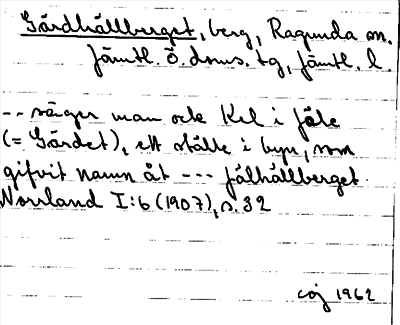 Gärdhållberget, berg, Ragunda sn.
Jämtl. ö. doms. tg, Jämtl. l.
-- säger man ock Kel i jäle
(= Gärdet), ett ställe i byn, som
gifvit namn åt --- jälhållberget.
Norrland I:6 (1907), s. 32
1962